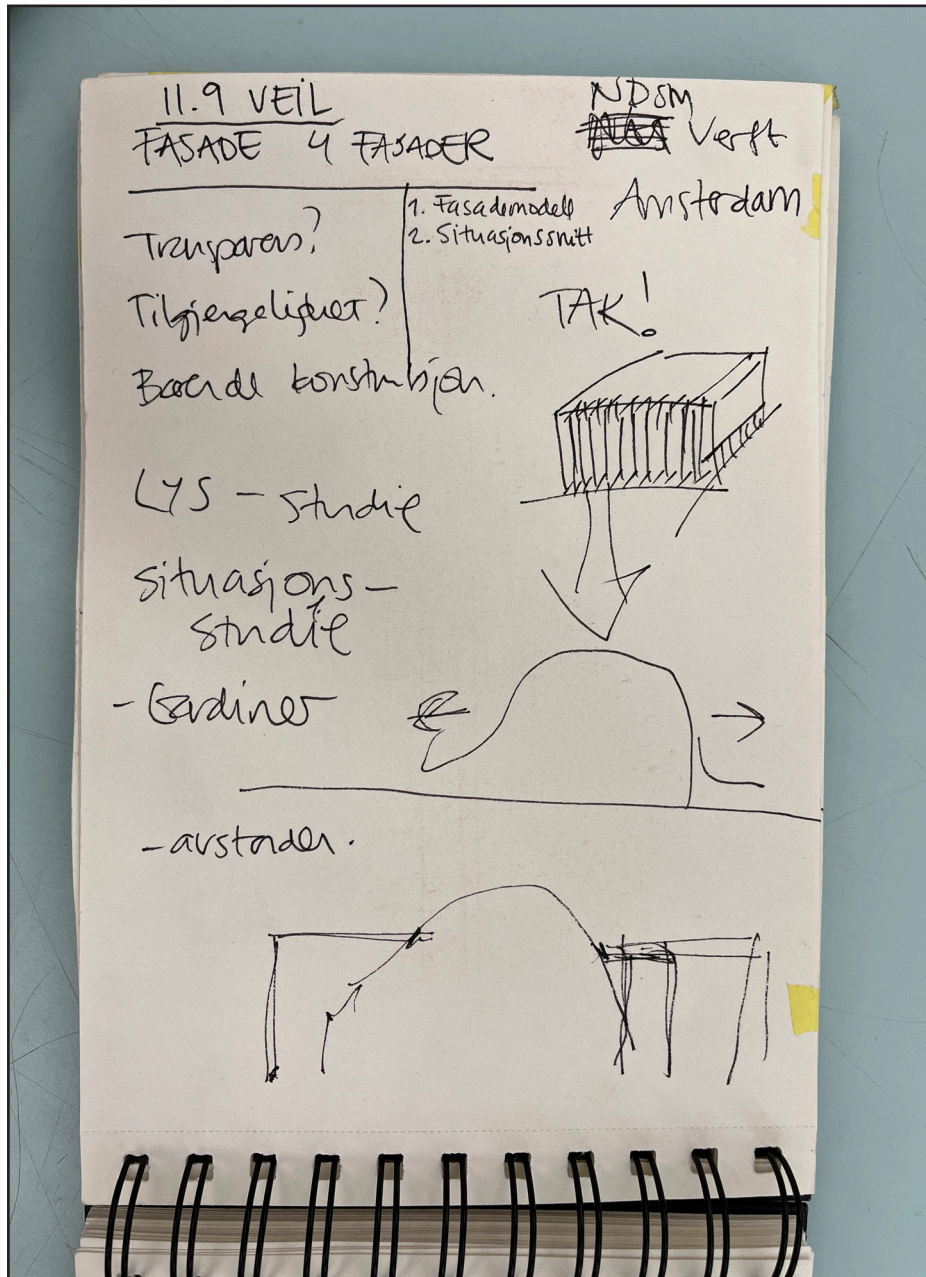 11.9 VEIL
FASADE 4 FASADER
NDSM
Verft
Amsterdam
1. Fasademodell
2. Situasjonssnitt
Transparens?
Tilgjengelighet?
Bærende konstruksjon.
TAK!
LYS - studie
situasjons-
studie
- Gardiner
- avstander.